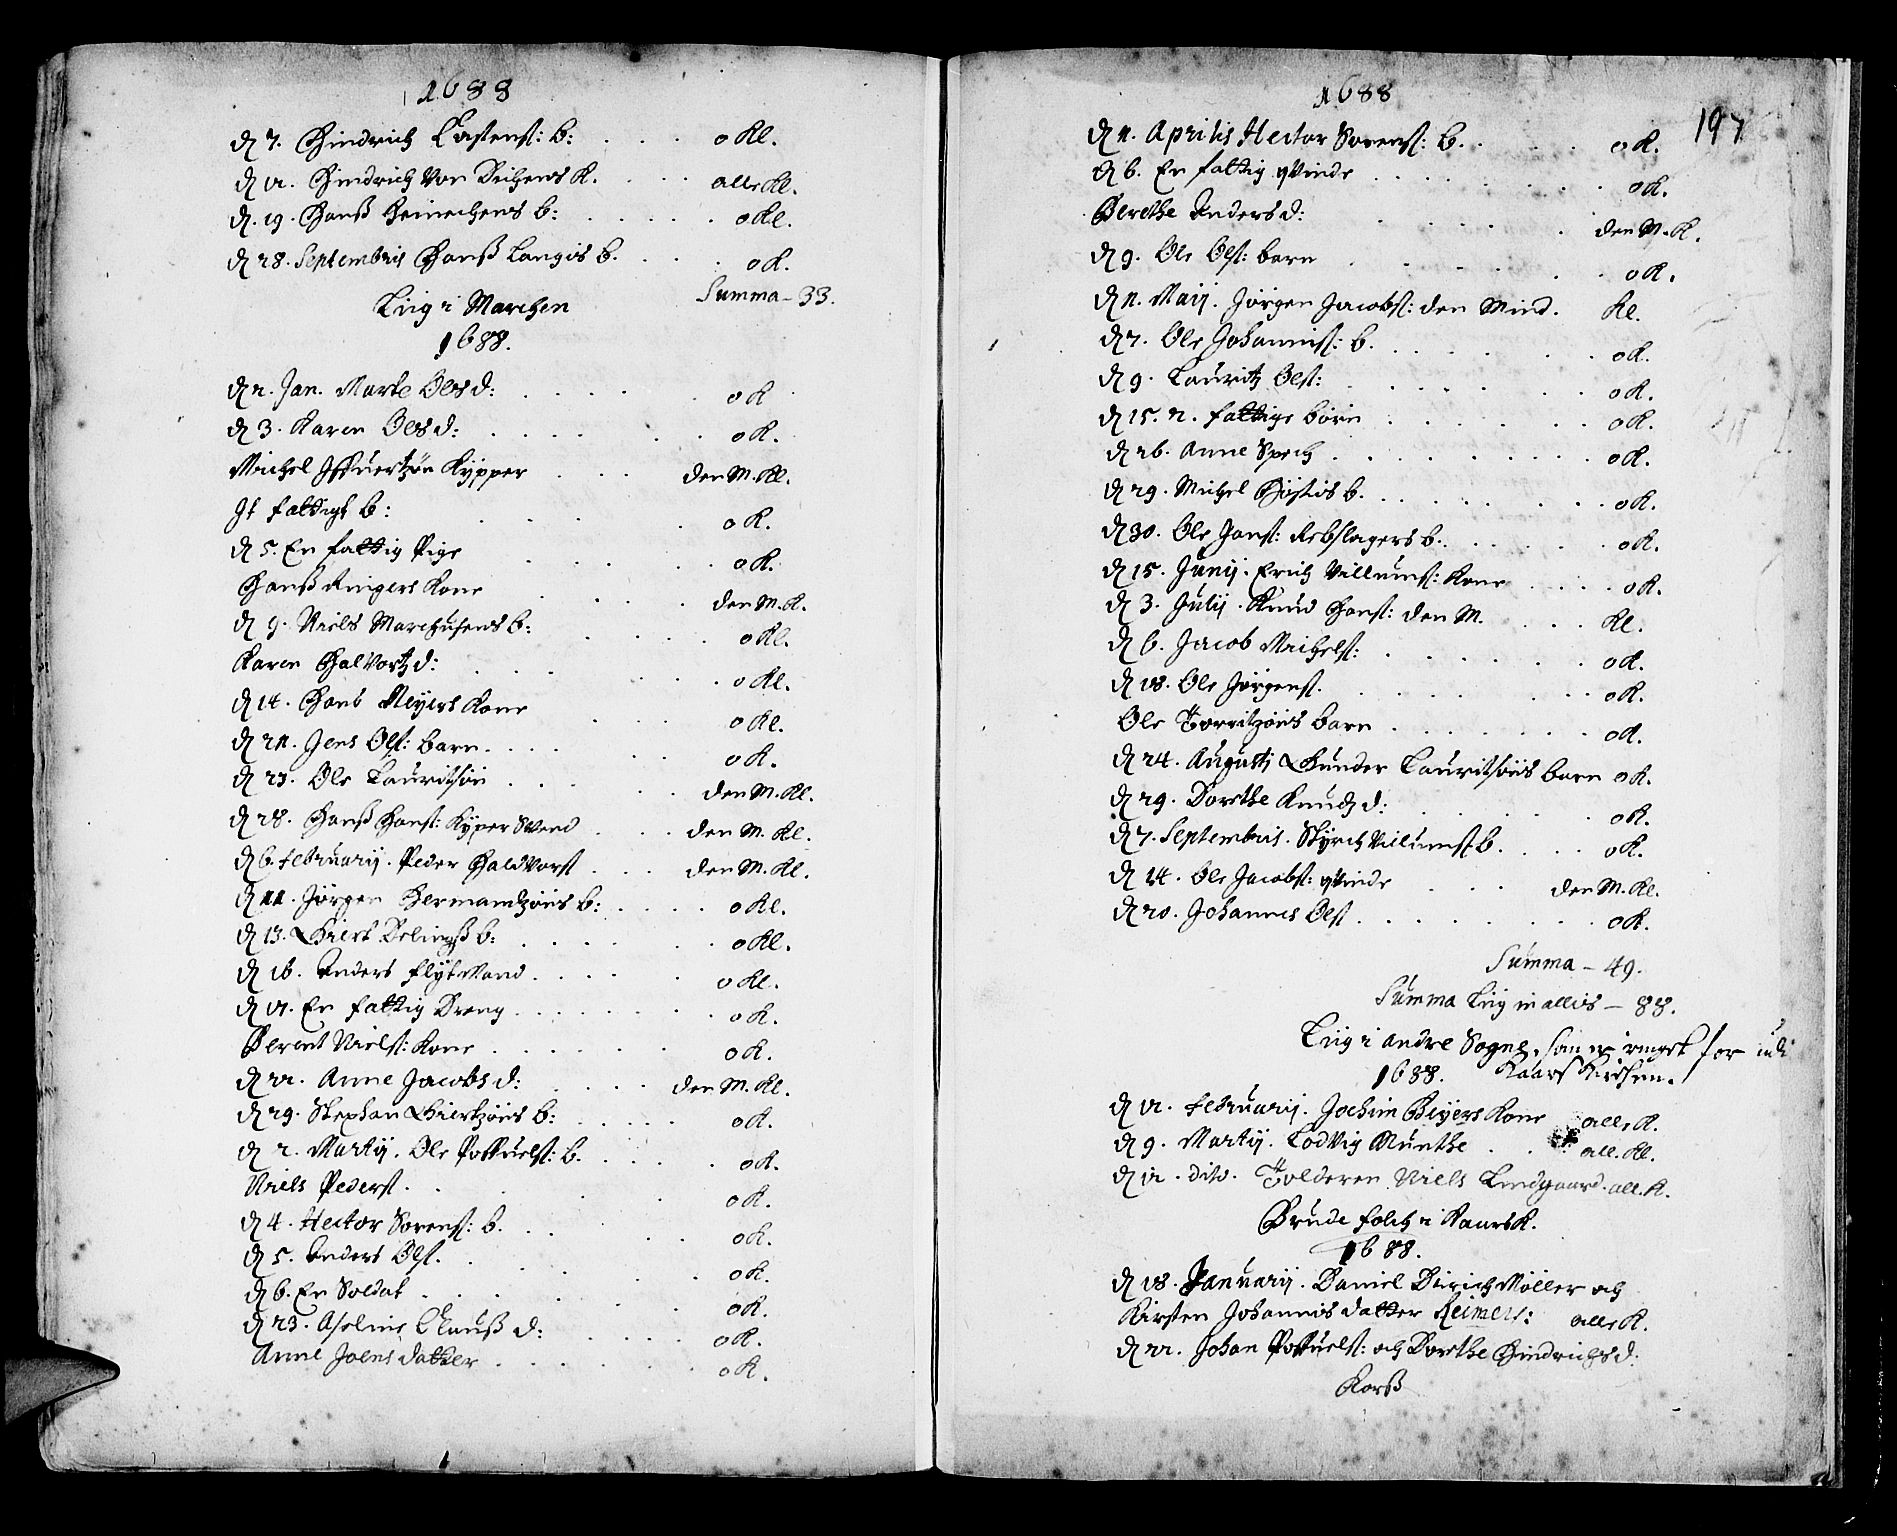 1688
D 7. Hindrich Carstens: B: . . . o Kl.
D 12. Hindrich Von Deichens K. . . . alle Kl.
D. 19. Hanß Heinechens B: . . . o Kl.
D 28. Septembris Hanß Langis B. . . . o K.
Summa - 33.
Liig i Marchen
1688.
D 2. Jan. Marte Olesd: . . . o K
D 3. Karen Olesd: . . . o K.
Michel Kypper . . . den M. Kl.
It fattigt B: . . . o K.
D 5. En fattig Pige . . . o K.
Hanß Ringers Kone . . . den M. K.
D 9. Niels Marchusens B: . . . o Kl.
Karen Halvortzd: . . . o Kl.
D 14. Hans Meyers Kone . . . o Kl.
D 21. Jens Ols: barn . . . o K.
D 23. Ole Lauritsøn . . . den M. Kl.
D 28. Hanß Hans: Kyper Svend . . . den M. Kl.
D 6. februarij. Peder Haldvorst . . . den M. Kl.
D 11. Jørgen Hermandzøns B: . . . o Kl.
D 13. Giert Delingß B: . . . o Kl.
D 16. Anders flytMand . . . o Kl.
D 17. En fattig Dreng . . . o K.
Berent Niels: Kone . . . o K.
D 22. Anne Jacobsd: . . . den M. Kl.
D 29. Stephan Giertzøns B: . . . o K.
D 2. Martij. Ole Poffuels: B. . . . o K.
Niels Peders. . . . o K.
D 4. Hector Sorens: B. . . . o K.
D 5. Anders Ols. . . . o K.
D 6. En Soldat . . . o K.
D 23. Aseline Clauß d: . . . o K.
Anne Joens datter . . . o K.
1688
197
D 2. Aprilis Hector Sorens: B. . . . o K.
D 6. En fattig qvinde . . . o K.
Berethe Anders d: . . . den M. K.
D 9. Ole Ols: barn . . . o K.
D 2. Maij. Jørgen Jacobs: den Mind. Kl.
D 7. Ole Johannis: B. . . . o K.
D 9. Lauritz Ols: . . . o K.
D 15. 2. fattige børn . . . o K.
D 26. Anne Spech . . . o K.
D 29. Michel B. . . . o K.
D 30. Ole Jans: Rebslagers B. . . . o K.
D 15. Junij. Erich Villums: Kone . . . o K.
D 3. Julij. Knud Hans: den M. . . . Kl.
D 6. Jacob Michels: . . . o K.
D 18. Ole Jørgens. . . . o K.
Ole barn . . . o K.
D 24. Augusti Gunder Lauritsøns barn o K.
D 29. Dorethe Knudz d: . . . o K.
D 7. Septembris. Villums B. . . . o K.
D 14. Ole Jacobs: qvinde . . . den M. Kl.
D 20. Johannes Ols . . . o K.
Summa - 49.
Summa Liig in alles - 88.
Liig i andre Sogne, som er ringet for udi
1688. Kaars Kirchen.
D 12. februarij. Jochim Beyers Kone alle K.
D 9. Martij. Lodvig Munthe . . . all. Kl.
D 12. dito. Tolderen Niels Lindgaard. all. K.
Brude folch i Kaars K.
1688.
D 18. Januarij. Daniel Dirich Møller och
Kirsten Johannis datter Reimers: alle K.
D 22. Johan Poffuels: och Dorethe Hindrichsd:
Korß